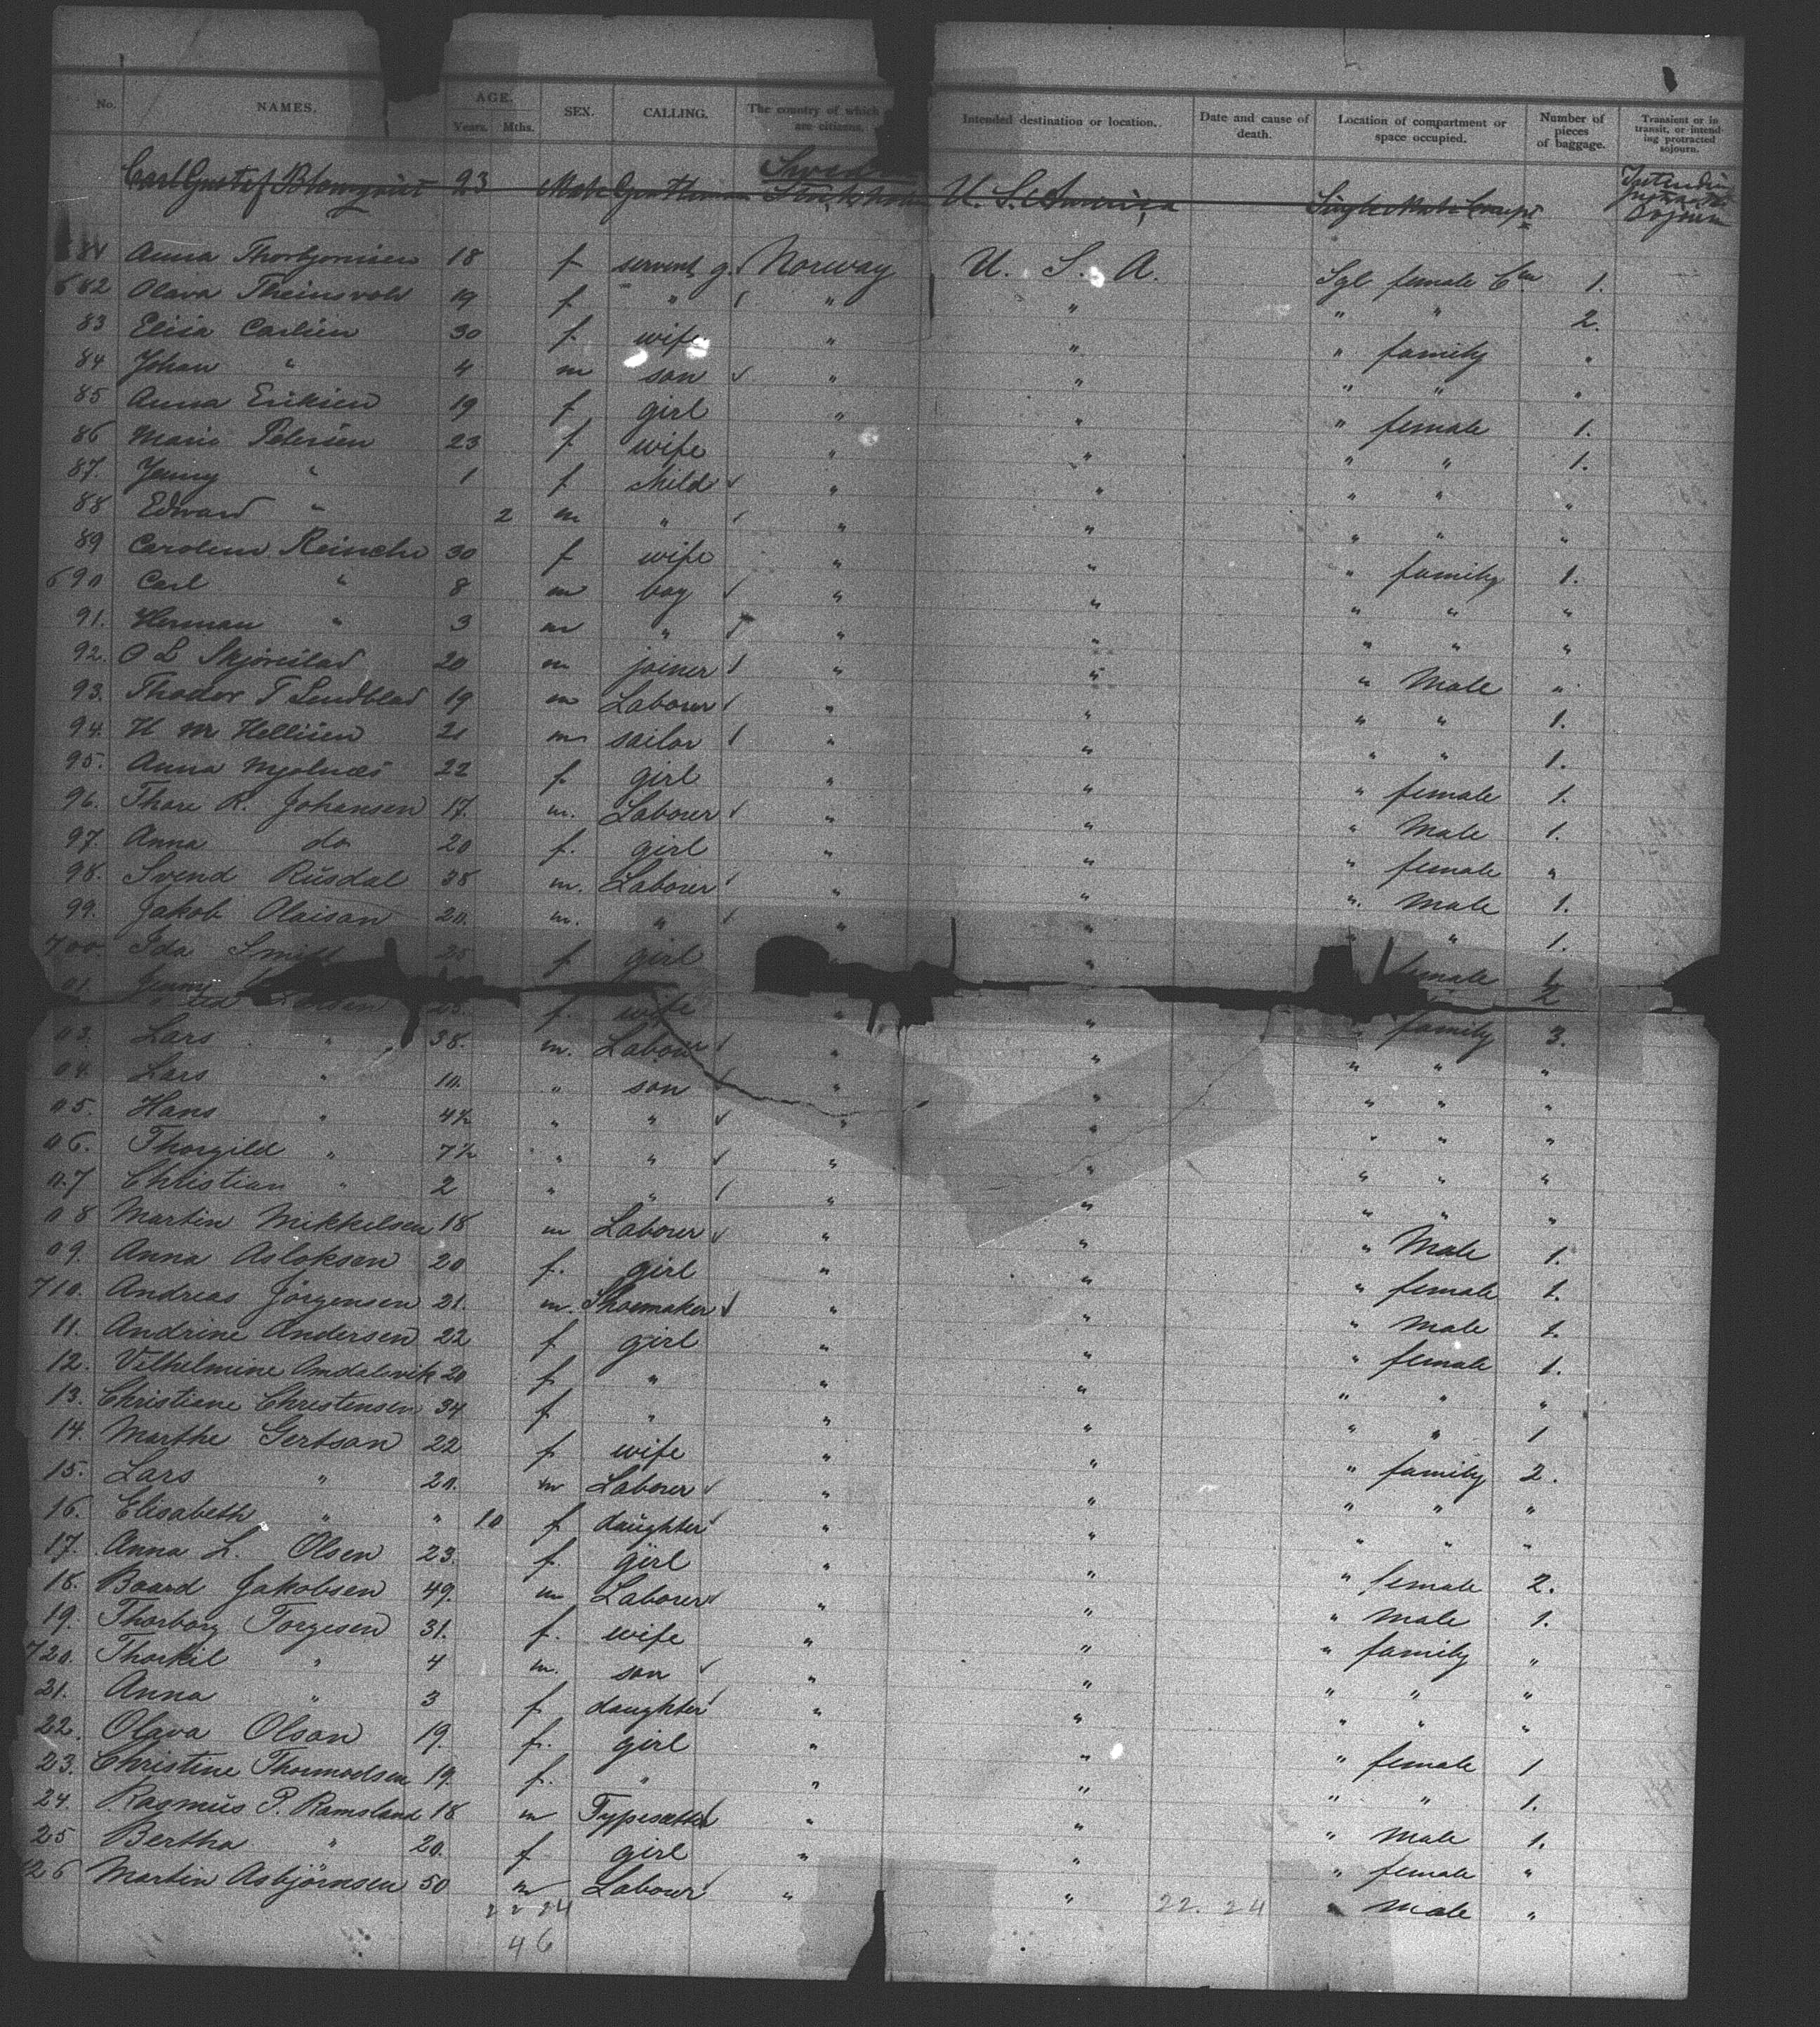 No. NAMES. AGE. Years. Mths. SEX. CALLING. The country of which are citizens. Intended destination or location. Date and cause of death. Location of compartment or space occupied. Number of pieces of baggage. Transient or in transit, or intending protracted sojourn.
Carl Gustaf Blomquist 23 Male Gentleman Sweden Stockholm U. S. America Single Male Compt Intending Protracted Sojourn
Anna 18 f servent g. Norway U. S. A. Sgl female 1.
682 Olava 19 f " " " " " 2.
83 Elisa Carlsen 30 f. wife " " " family "
84 Johan " 4 m son " " " " "
85 Anna Eriksen 19 f girl " " " female 1.
86 Marie Petersen 23 f wife " " " " 1.
87. Jenny " 1 f child " " " " "
88 Edward " 2 m " " " " " "
89 30 f wife " " " family 1.
690 Carl " 8 m boy " " " " "
91. Herman " 3 m " " " " " "
92. O L 20 m joiner " " " Male "
93. Thodor T Lindblad 19 m Laborer " " " " 1.
94. H M Hellisen 21 m sailor " " " " 1.
95. Anna 22 f. girl " " " female 1.
96. Thore R. Johansen 17. m. Laborer " " " Male 1.
97. Anna do 20 f. girl " " " female "
98. Svend Rüsdal 38 m. Laborer " " " Male 1.
99. Jakob Olaisan 20. m. " " " " " 1.
700. Ida 25 f girl " female 1
01. Jenny 2
f. wife " " " family 3.
03. Lars " 38. m. Labour " " " " "
04. Lars " 10. " son " " " " "
05. Hans " 4½ " " " " " " "
06. Thorgild " 7½ " " " " " " "
07 Christian " 2 " " " " " " "
08 Martin Mikkelsen 18 m Laborer " " " Male 1.
09. Anna Asloksen 20 f. girl " " " female 1.
710. Andreas Jörgensen 21. m. Shoemaker " " " Male 1.
11. Andrine Andersen 22 f girl " " " female 1.
12. Vilhelmine Amdalsvik 20 f " " " " " "
13. Christiane Christensen 34 f " " " " " 1
14. Marthe Gertsan 22 f wife " " " family 2.
15. Lars " 20. m Laborer " " " " "
16. Elisabeth " " 10 f daughter " " " " "
17. Anna L. Olsen 23. f. girl " " " female 2.
18. Baard Jakobsen 49. m Laborer " " " male 1.
19. Thorborg Torgesen 31. f. wife " " " family "
720. Thorkil " 4 m. son " " " " "
21. Anna " 3 f daughter " " " " "
22. Olava Olsan 19. f. girl " " " female 1
23. Christine Thormodsen 19. f. " " " " " 1.
24. Rasmüs P. Ramsland 18 m Typesetter " " " male 1.
25 Bertha " 20. f girl " " " female "
726 Martin Asbjörnsen 50 m Labour " " " male "
22 24 22. 24
46